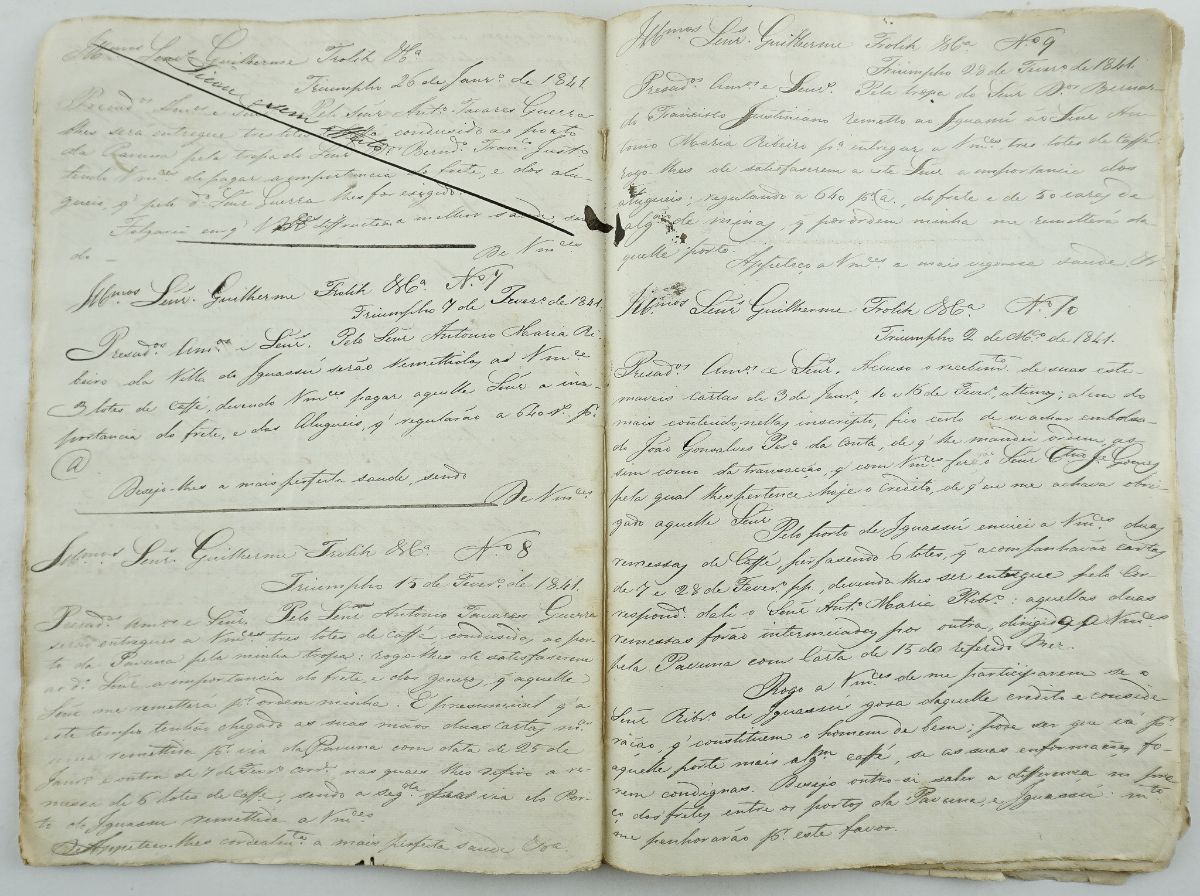 Illmos Senr. Guilherme Frolik & Cª
Triumpho 26 de Janrº. de 1841.
Ficou sem effeito
Presados Amos e Senr. Pelo Senr Antº. Tavares Guerra
lhes sera entregue tres lotes conduzido ao porto
da Pavuna pela tropa do Senr Bernº. Franº. Justº
tendo Vmces de pagar a importancia do frete, e dos alu-
gueis, q' pelo dº. Senr Guerra lhes for exigido.
Folgarei em q' Vmces disfructem a melhor saude, sen
do —
De Vmces
Illmos Senr. Guilherme Frolik & Cª Nº. 7
Triumpho 7 de Feverº. de 1841.
Presados Amos e Senr. Pelo Senr Antonio Maria Ri-
beiro da Villa de Iguassú serão remettidos as Vmce
3 lotes de caffe, devendo Vmces pagar aquelle Senr a im-
portancia do frete, e dos Alugueis, q' regularão a 640 rs. p.
@
Desejo-lhes a mais perfeita saude, sendo
De Vmces
Illmos Senr. Guilherme Frolik & Cª Nº 8
Triumpho 15 de Feverº. de 1841.
Presados Amos e Senr. Pelo Senr Antonio Tavares Guerra
serão entregues a Vmces tres lotes de caffe, condusido, ao por-
to da Pavuna pela minha tropa: rogo-lhes de satisfaserem
ao dº. Senr a importancia do frete e dos generos, q' aquelle
Senr me remetterá pr. ordem minha. É presumivel q' a
este tempo tenhão chegado as suas mãos duas cartas mi-
nha remettida pr. via da Pavuna com data de 25 de
Janrº. e outra de 7 de Fevrº. cor. nas quaes lhes refiro a re-
messa de 6 lotes de caffe, sendo a segda. via do Por-
to de Iguassu remettida a Vmces
Appeteço-lhes cordealmte. a mais perfeita saude Era.
Illmos Senr. Guilherme Frolik & Cª Nº 9
Triumpho 28 de Feverº. de 1841.
Presados Amos. e Senr. Pela tropa do Senr Dos Bernar-
do Francisco Justiniano remetto ao Iguassú ao Senr An-
tonio Maria Ribeiro pª. entregar, a Vmces tres lotes de Caffé:
rogo-lhes de satisfaserem a este Senr a importancia dos
alugueis: regulando a 640 p. @., do frete e de 50 varas de
algam de minas, q' por ordem minha me remetterá da-
quelle porto.
Appeteço a Vmces a mais vigorosa saude.
Illmos Senr Guilherme Frolik & Cª. Nº. 10
Triumpho 2 de Mço. de 1841.
Presados. Amos. e Senr. Accuso o recebimto. de suas este-
maveis cartas de 3 de Janrº. 10 e 15 de Feverº. ultimo; alem do
mais contendo nellas inscripto, fico certo de se achar embolsa-
do João Gonsalves Perª. da Conta, de q' lhe mandei ordem, as
sim como da transacção, q' com Vmces fes o Senr Gomes
pela qual lhes pertence hoje o Credito, de q' eu me achava obri-
gado aquelle Senr
Pelo porto de Iguassú enviei a Vmces duas
remessas de Caffé, perfasendo 6 lotes, q' acompanharão cartas
de 7 e 28 de Feverº. pp., devendo lhes ser entregue pelo Cor-
respondte. dali o Senr Antº. Maria Ribrº.: aquellas duas
remessas forão intermeiadas por outra, dirigida a Vmces
pela Pavuna com Carta de 15 do referido Mez.
Rogo a Vmces de me participarem se o
Senr Ribrº. de Iguassú gosa daquelle credito e conside-
ração, q' constituem o homem de bem: pode ser que vá pª.
aquelle porto mais algm caffé, se as suas enformações fo-
rem condignas. Desejo outro-si saber a differença no pre-
ço dos fretes entre os portos da Pavuna, e Iguassú: mto
me penhorarão pr. este favor.